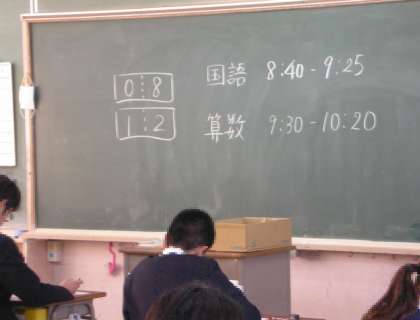 0:8
1:2
国語 8:40-9:25
算数 9:30-10:20